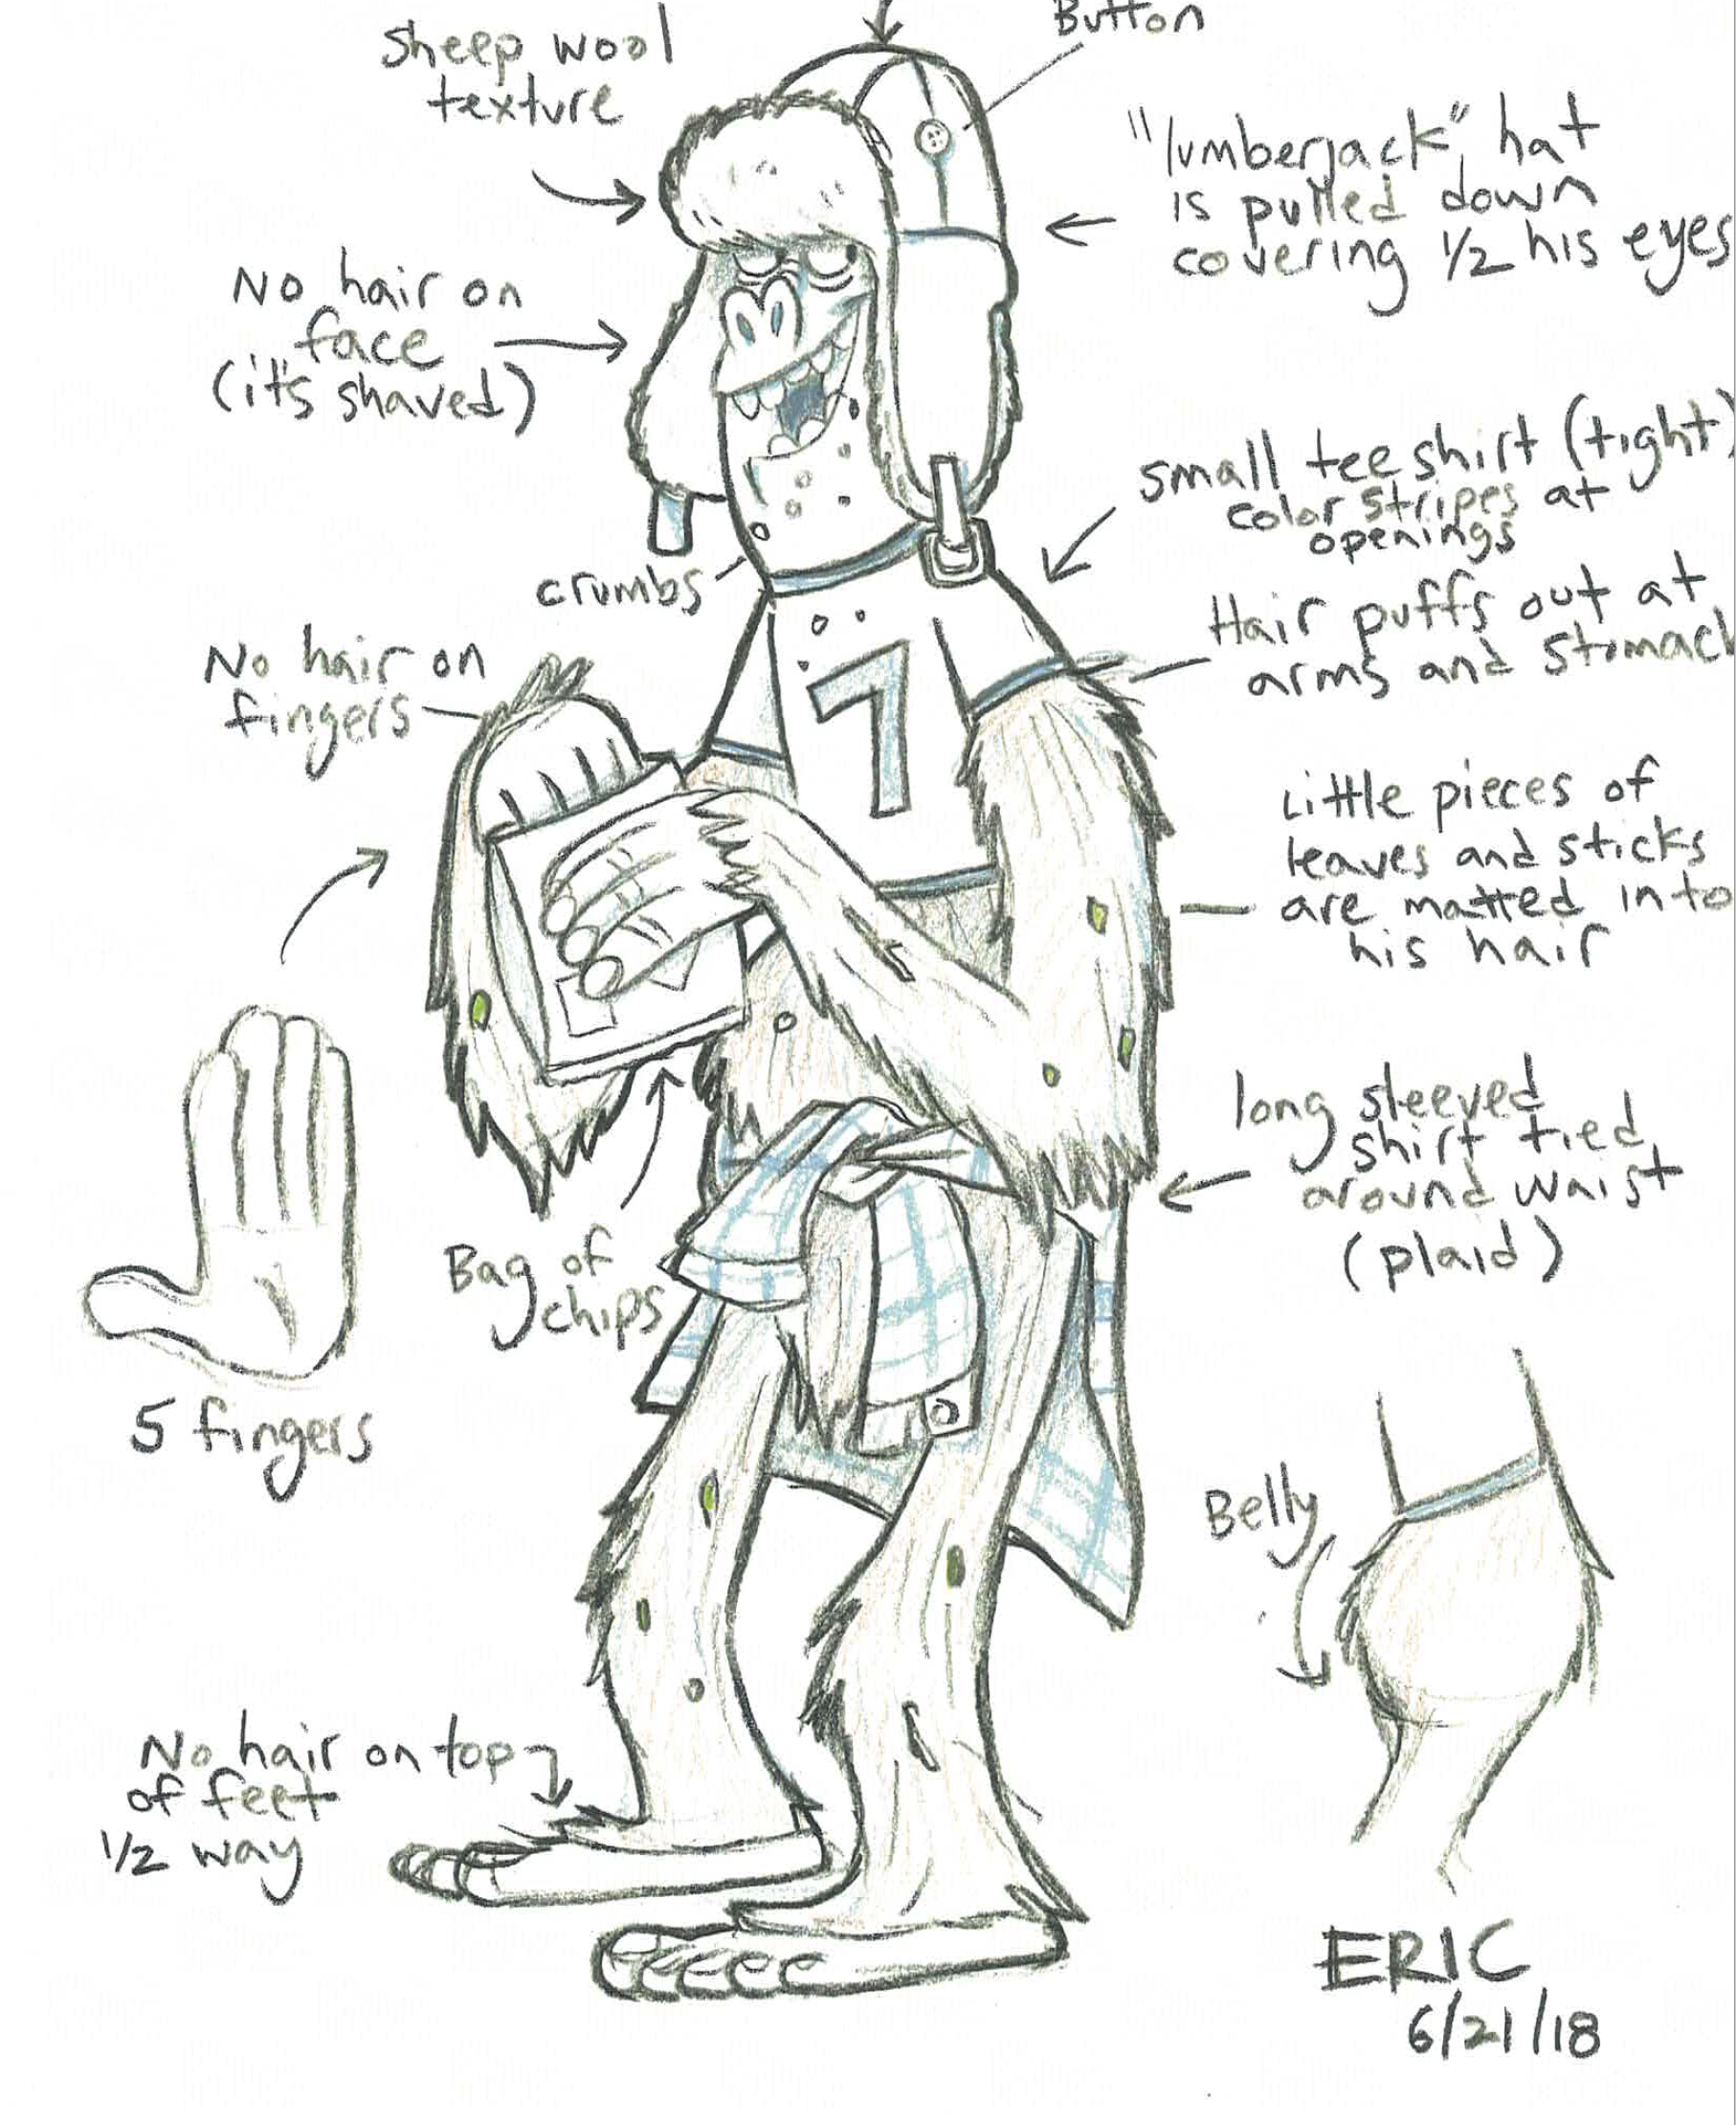 Button
sheep wool
texture
"lumberjack" hat
is pulled down
covering 1/2 his eyes
No hair on
face
(it's shaved)
small tee shirt (tight)
color stripes at
openings
crumbs
Hair puffs out at
arms and stomach
No hair on
fingers
7
Little pieces of
leaves and sticks
are matted into
his hair
long sleeved
shirt tied
around waist
(plaid)
Bag of
chips
5 fingers
Belly
No hair on top
of feet
1/2 way
ERIC
6/21/18